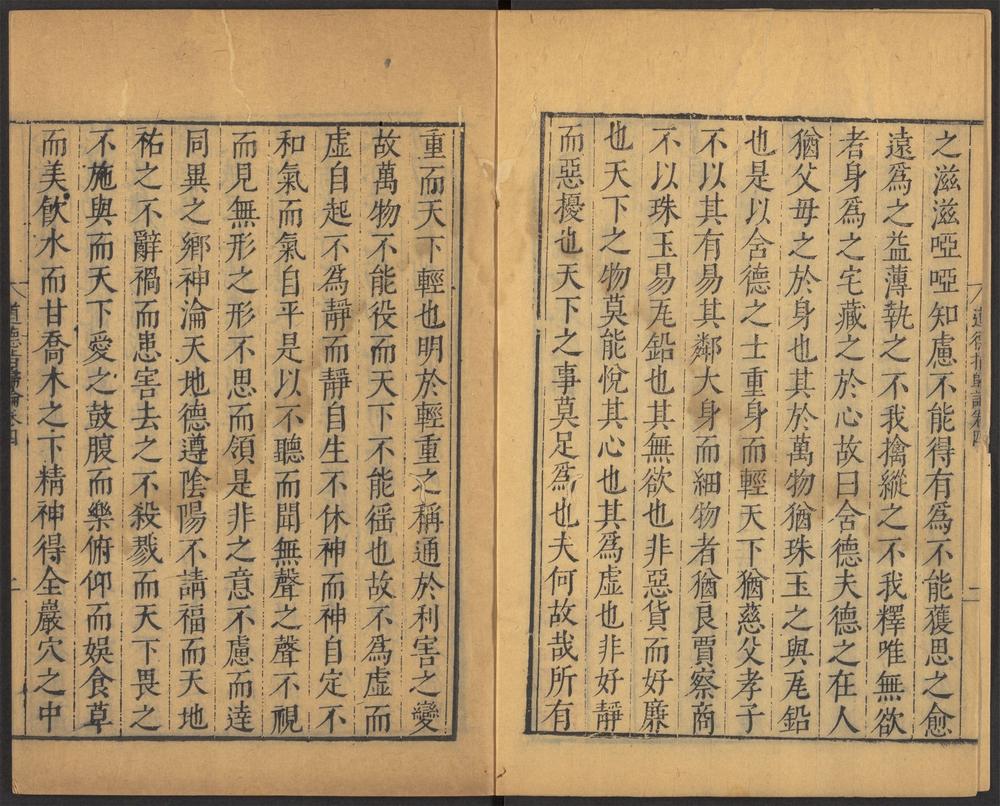 道德指歸論卷四
二
之滋滋啞啞知慮不能得有爲不能獲思之愈
遠爲之益薄執之不我擒縱之不我釋唯無欲
者身爲之宅藏之於心故曰含德夫德之在人
猶父母之於身也其於萬物猶珠玉之與瓦鉛
也是以含德之士重身而輕天下猶慈父孝子
不以其有易其鄰大身而細物者猶良賈察商
不以珠玉易瓦鉛也其無欲也非惡貨而好廉
也天下之物莫能悅其心也其爲虛也非好靜
而惡擾也天下之事莫足爲也夫何故哉所有
重而天下輕也明於輕重之稱通於利害之變
故萬物不能役而天下不能徭也故不爲虛而
虛自起不爲靜而靜自生不休神而神自定不
和氣而氣自平是以不聽而聞無聲之聲不視
而見無形之形不思而領是非之意不慮而達
同異之鄉神淪天地德遵陰陽不請福而天地
祐之不辭禍而患害去之不殺戮而天下畏之
不施與而天下愛之鼓腹而樂俯仰而娛食草
而美飲水而甘喬木之下精神得全巖穴之中
道德指歸論卷四
二